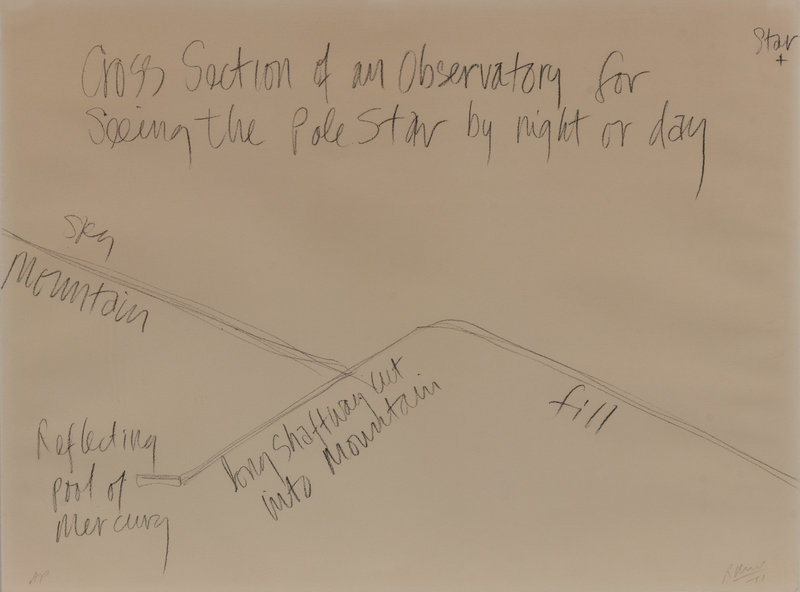 Star
+
Cross Section of an Observatory for
Seeing the Pole Star by night or day
Sky
Mountain
long shaftway cut
into Mountain
fill
Reflecting
pool of
Mercury
AP